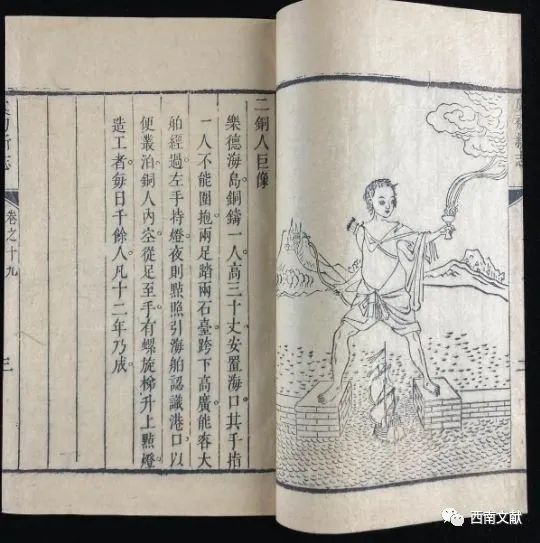 二銅人巨像
樂德海島銅鑄一人高三十丈安置海口其手指
一人不能圍抱兩足踏兩石臺跨下高廣能容大
舶經過左手持燈夜則點照引海舶認識港口以
便叢泊銅人內空從足至手有螺旋梯升上點燈
造工者每日千餘人凡十二年乃成
虞初新志
卷之十九
三
西南文献